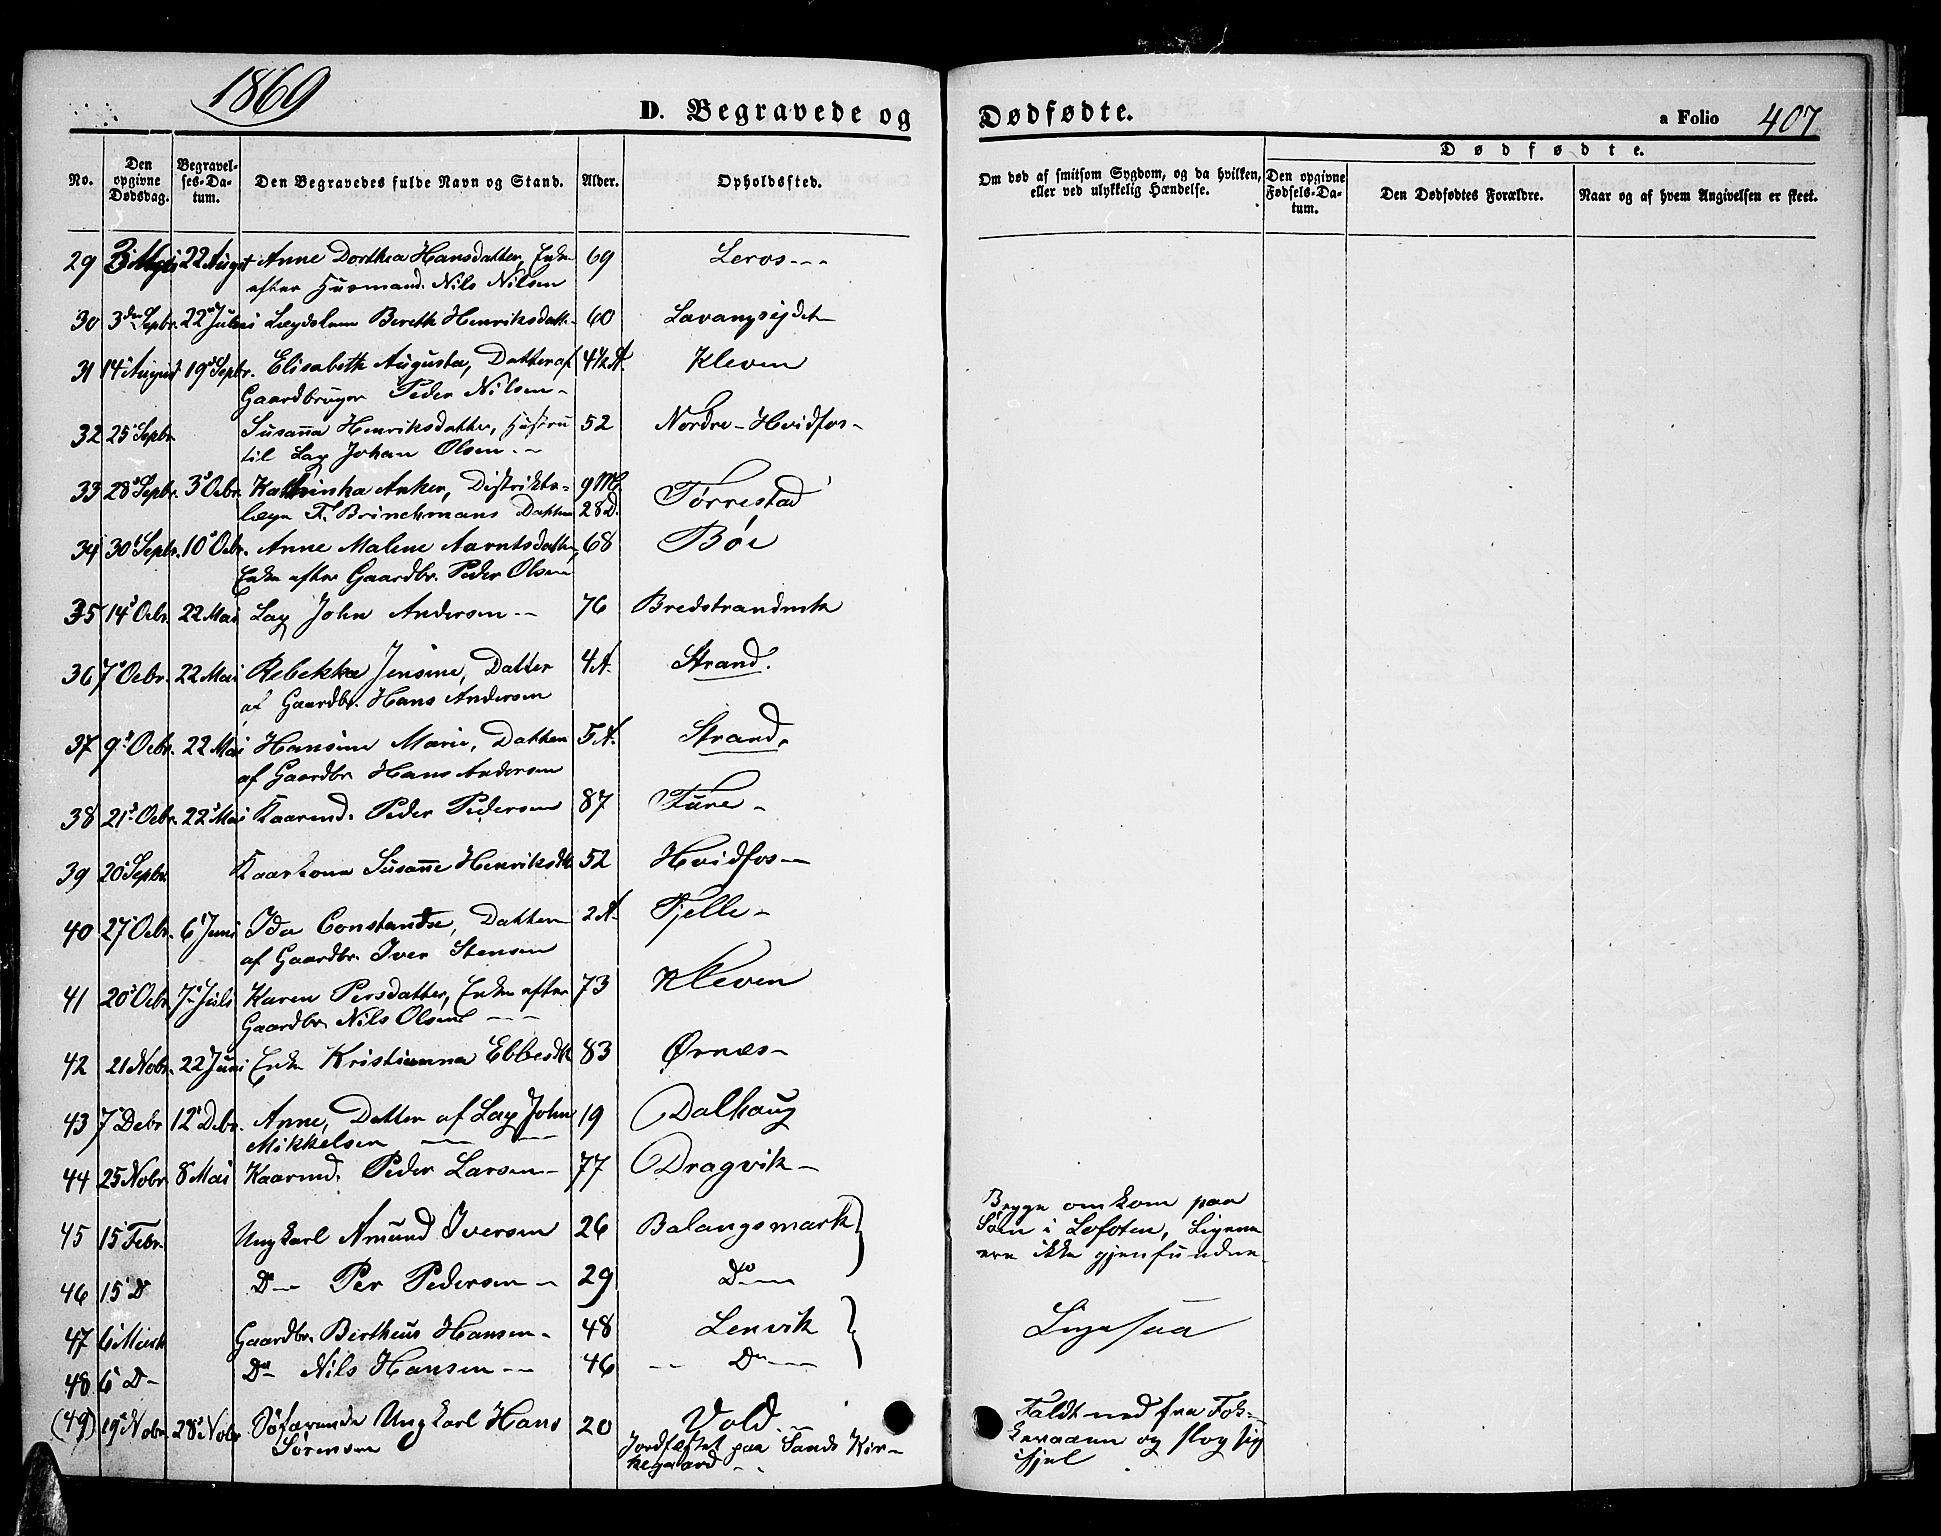 1869
D. Begravede og Dødfødte.
a Folio 407
No.
Den opgivne Dødsdag.
Begravelses-Datum.
Den Begravedes fulde Navn og Stand.
Alder.
Opholdssted.
Om død af smitsom Sygdom, og da hvilken, eller ved ulykkelig Hændelse.
Dødfødte.
Den opgivne Fødsels-Datum.
Den Dødfødtes Forældre.
Naar og af hvem Angivelsen er skeet.
29 22 August Anne Dorthea Hansdatter, Enke 69 Leros
efter Husmand Nils Nilsen
30 3die Septbr. 22 Juni Lægdslem Bereth Henriksdatt. 60 Lavangsejdet
31 14 August 19 Septbr. Elisabeth Augusta, Datter af 4½ A. Kleven
Gaardbruger Peder Nilsen
32 25 Septbr. Susanna Henriksdatter, Hustru 52 Nordre-Hvidfos
til Lap Johan Olsen
33 28 Septbr. 3 Octbr. Kathinka Anker, Distrikts- 9 M. Tørrestad
læge F. Brinchmans Datter 28 D.
34 30 Septbr. 10 Octbr. Anne Malene Aarntsdatter, 68 Bøe
Enke efter Gaardbr. Peder Olsen
35 14 Octbr. 22 Mai Lap John Andersen 76 Bredstrandmrk
36 7 Octbr. 22 Mai Rebekka Jensine, Datter 4 A. Strand.
af Gaardbr. Hans Andersen
37 9 Octbr. 22 Mai Hansine Marie, Datter 5 A. Strand.
af Gaardbr Hans Andersen
38 21 Octbr. 22 Mai Kaarmd. Peder Pedersen 87 Fure
39 20 Septbr. Kaarkone Susanne Henriksdtr 52 Hvidfos
40 27 Octbr. 6 Juni Ida Constandse, Datter 2 A. Fjelle
af Gaardbr. Iver Stensen
41 20 Octbr. 7 Juli Karen Persdatter, Enke efter 73 Kleven
Gaardbr. Nils Olsen
42 21 Nobr. 22 Juni Enke Kristianna Ebbesdtr 83 Ørnæs
43 7 Debr. 12 Debr. Anne, Datter af Lap John 19 Dalhaug
Mikkelsen
44 25 Nobr. 8 Mai Kaarmd. Peder Larsen 77 Dragvik
45 15 Febr. Ungkarl Amund Iversen 26 Balangsmark
Begge omkom paa
Søen i Lofoten, Ligene
ere ikke gjenfundne
46 15 D Do Per Pedersen 29 Do
47 6 Marts Gaardbr. Birtheus Hansen 48 Lenvik
Ligesaa
48 6 D Do Nils Hansen 46 Do
(49) 19 Nobr. 28 Nobr. Søfarende Ungkarl Hans 20 Vold
Sørensen
Jordfæstet paa Sands Kirkegaard
Faldt ned fra Fok-
keraaen og slog sig
ihjel